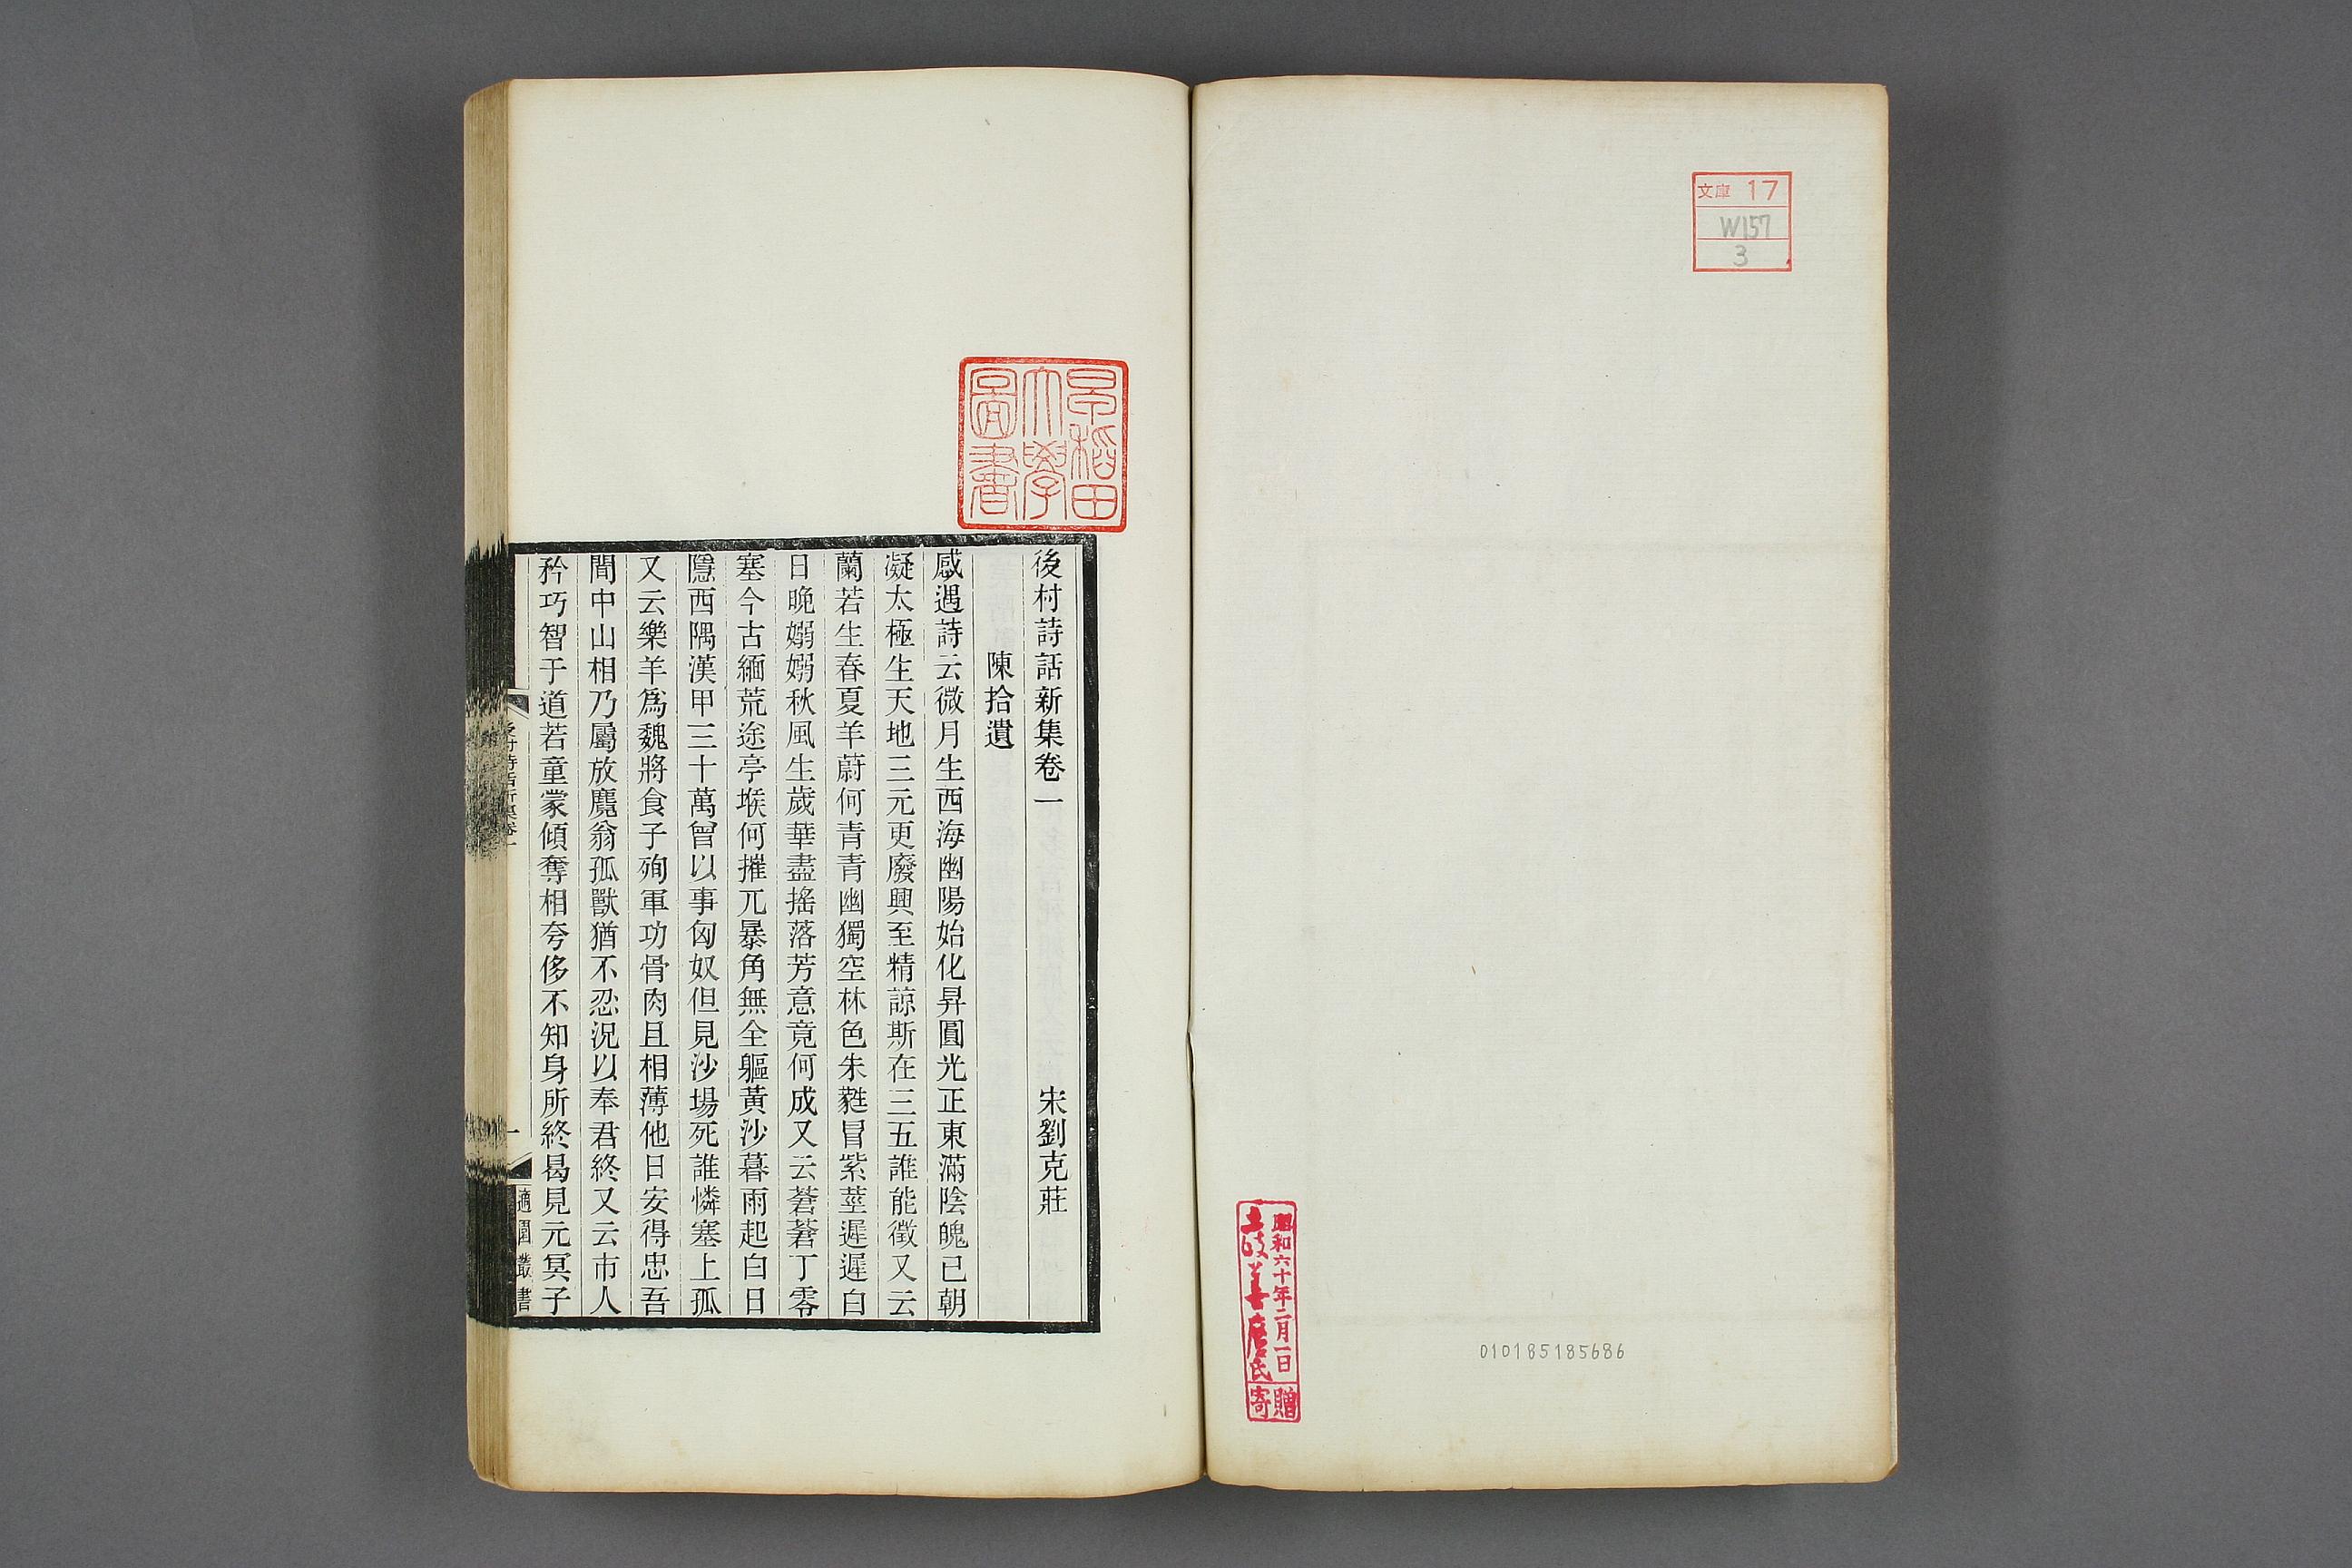 文庫 17
W157
3
昭和六十年二月一日
土岐善麿氏
寄贈
010185185686
早稲田
大學
圖書
後村詩話新集卷一
宋劉克莊
陳拾遺
感遇詩云微月生西海幽陽始化昇圓光正東滿陰魄已朝
凝太極生天地三元更廢興至精諒斯在三五誰能徵又云
蘭若生春夏羊蔚何青青幽獨空林色朱蕤冒紫莖遲遲白
日晚嫋嫋秋風生歲華盡搖落芳意竟何成又云蒼蒼丁零
塞今古緬荒途亭堠何摧兀暴角無全軀黃沙暮雨起白日
隱西隅漢甲三十萬曾以事匈奴但見沙場死誰憐塞上孤
又云樂羊爲魏將食子殉軍功骨肉且相薄他日安得忠吾
聞中山相乃屬放麑翁孤獸猶不忍況以奉君終又云市人
矜巧智于道若童蒙傾奪相夸侈不知身所終曷見元冥子
一
適園叢書